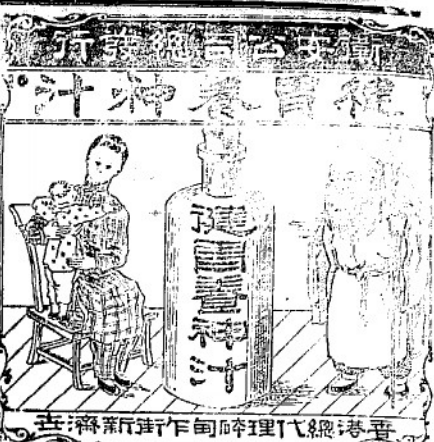 安公司總發行
健胃養神汁
健胃養神汁
香港總代理砵甸乍街新濟